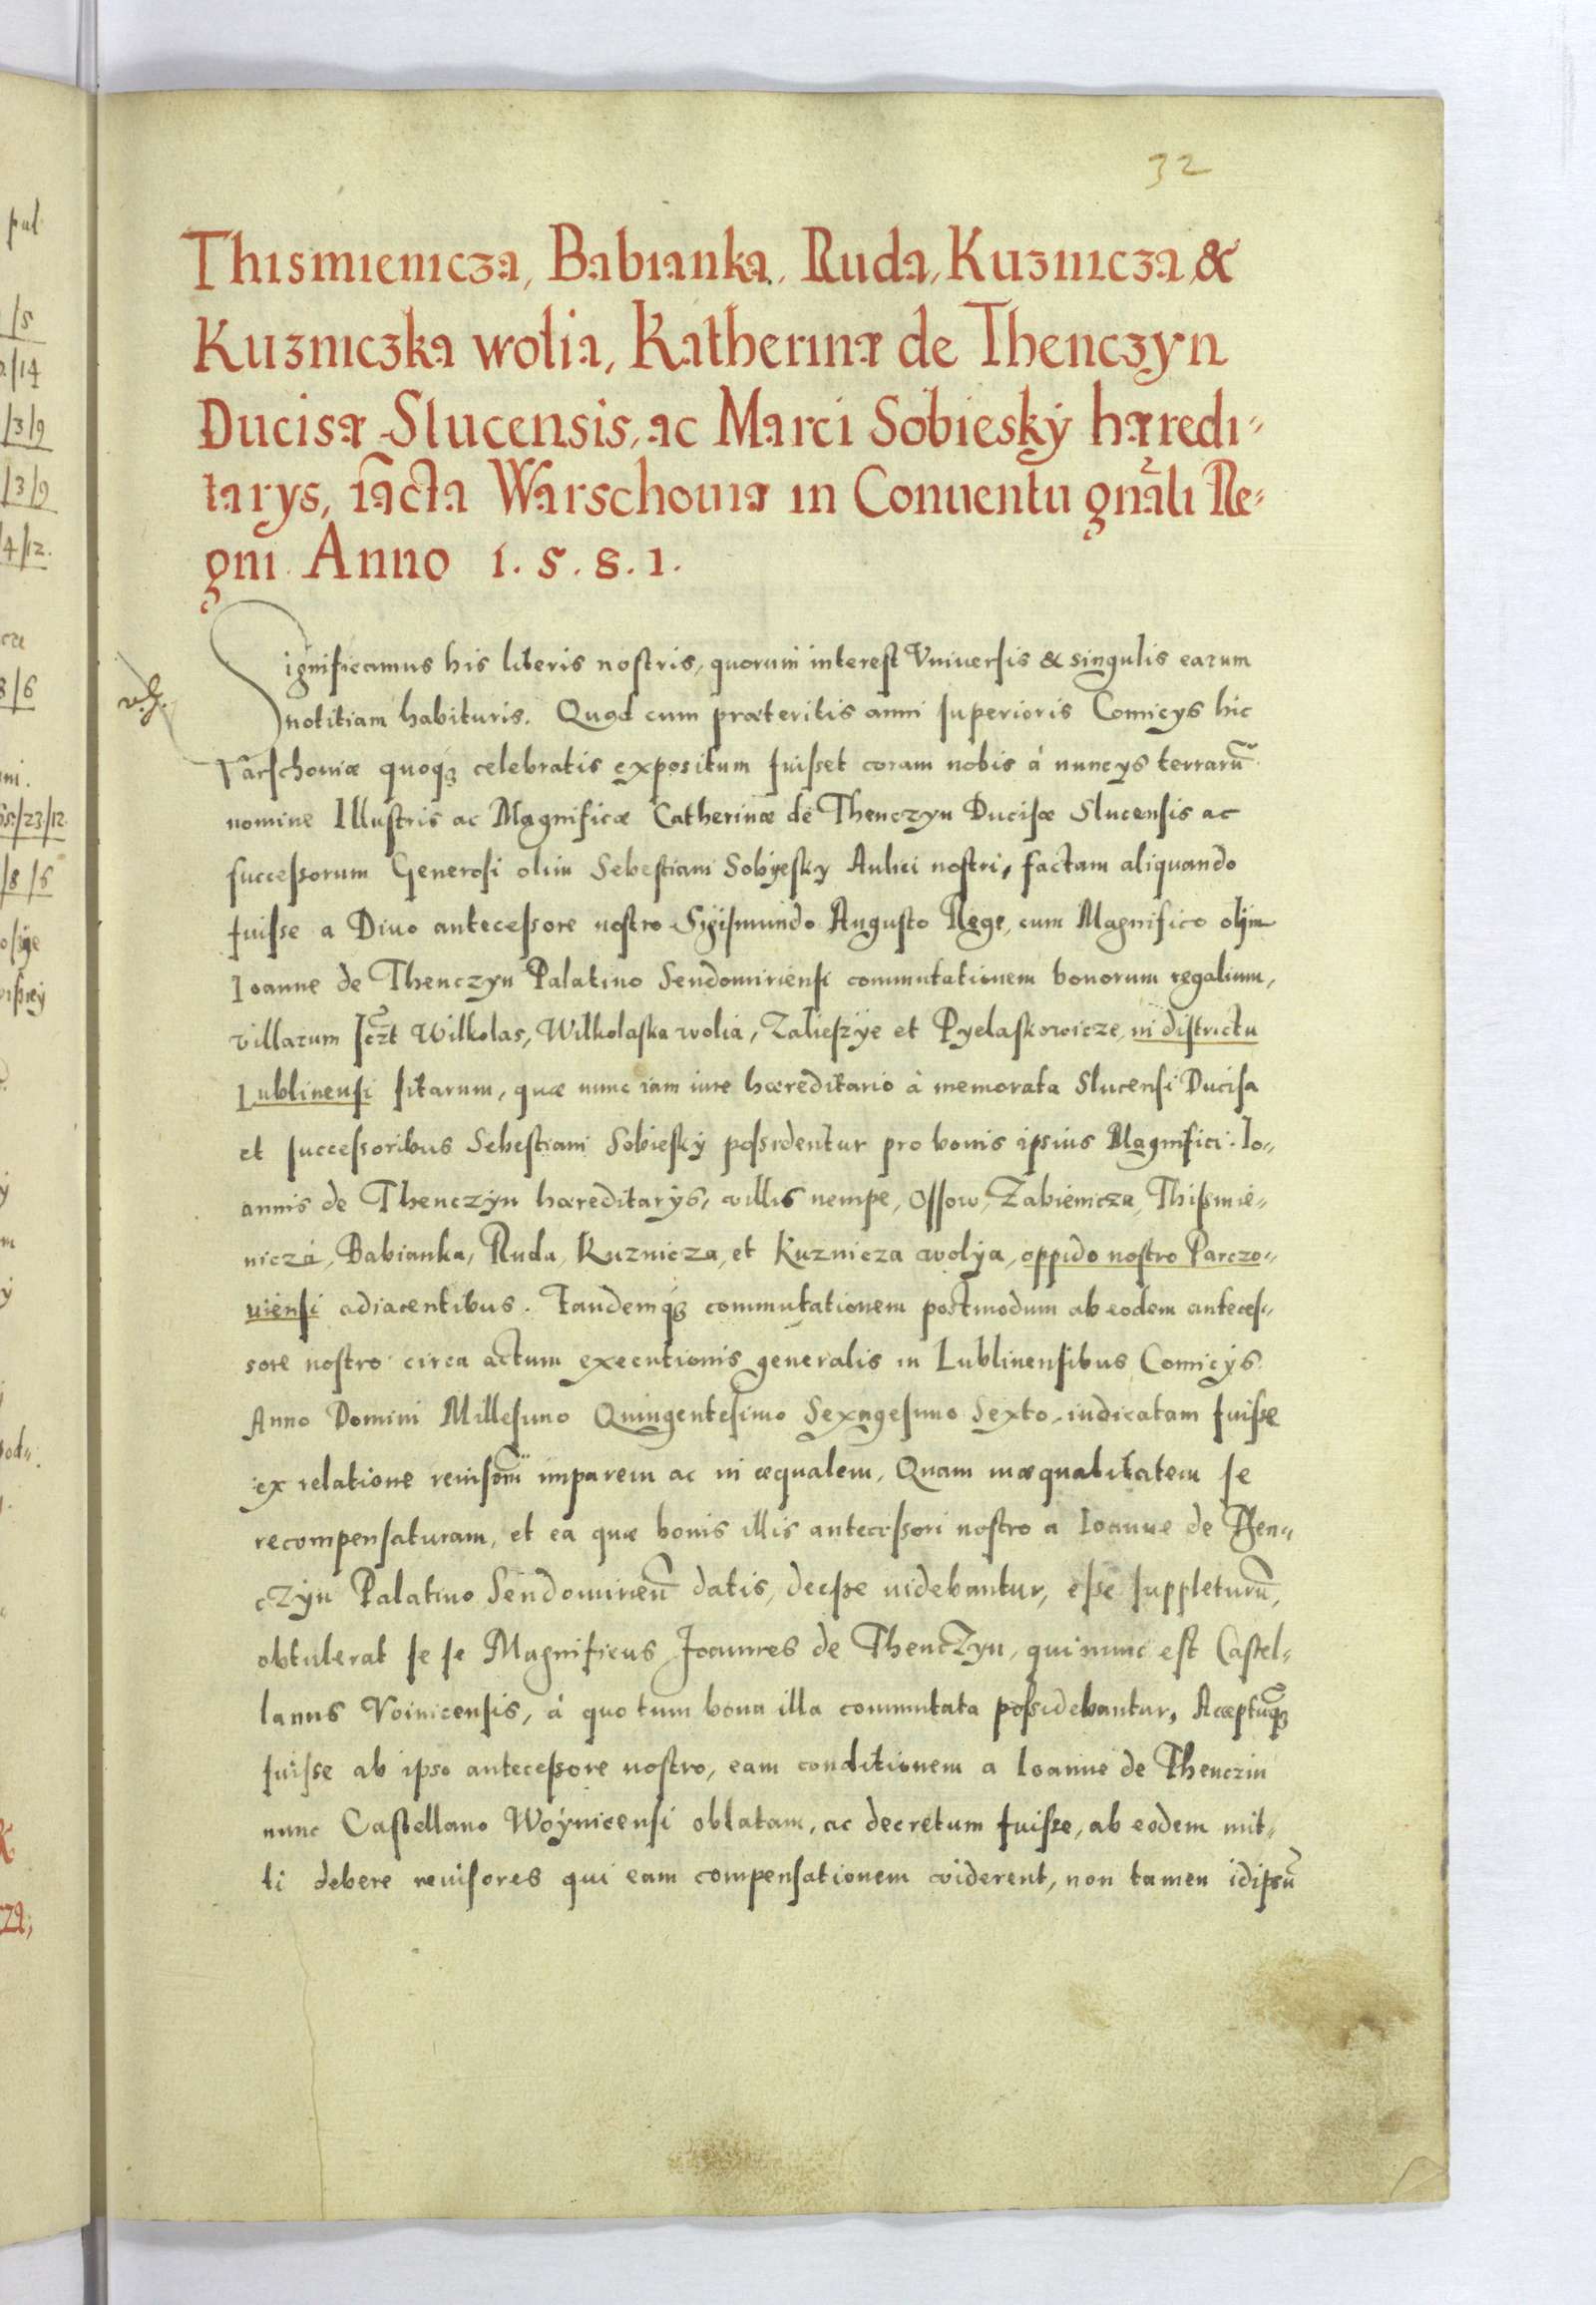 32
Thismienicza, Babianka, Ruda, Kuznicza, &
Kuzniczka wolia, Katherinæ de Thenczyn
Ducisæ Slucensis, ac Marci Sobiesky hæredi„
tarys, iãcta Warschouiæ in Conuentu gnãli Re„
gni Anno 1.5.8.1.
Significamus his literis nostris, quorum interest Vniuersis & singulis earum
notitiam habituris. Quod cum præteritis anni superioris Comicys hic
Varschouiæ quoqȝ celebratis expositum fuisset coram nobis à nuncys terrarũ
nomine Illustris ac Magnificæ Catherinæ de Thenczyn Ducisæ Slucensis ac
successorum Generosi olim Sebestiani Sobyesky Aulici nostri, factam aliquando
fuisse a Diuo antecessore nostro Sigismundo Augusto Rege, cum Magnifico olim
Ioanne de Thenczyn Palatino Sendomiriensi commutationem bonorum regalium,
villarum sczt Wilkolas, Wilkolaska wolia, Zalieszye et Pyelaskowicze, in districtu
Lublinensi sitarum, quæ nunc iam iure hæreditario à memorata Slucensi Ducisa
et successoribus Sebestiani Sobiesky possidentur pro bonis ipsius Magnifici Io„
annis de Thenczyn hæreditarys, villis nempe, Ossow, Zabienicza, Thismie„
nicza, Babianka, Ruda, Kuznicza, et Kuznicza wolya, oppido nostro Parczo„
uiensi adiacentibus. Tandemqȝ commutationem postmodum ab eodem anteces„
sore nostro circa actum executionis generalis in Lublinensibus Comicys
Anno Domini Millesimo Quingentesimo Sexagesimo Sexto, iudicatam fuisse
ex relatione reuisorũ imparem ac in æqualem, Quam inæqualitatem se
recompensaturam, et ea quæ bonis illis antecessori nostro a Ioanne de Then„
czyn Palatino Sendomirieñ datis, deesse uidebantur, esse suppleturũ,
obtulerat se se Magnificus Joannes de Thenczyn, qui nunc est Castel„
lanus Voinicensis, à quo tum bona illa commutata possidebantur, Acceptũqȝ
fuisse ab ipso antecessore nostro, eam conditionem a Ioanne de Thenczin
nunc Castellano Woynicensi oblatam, ac decretum fuisse, ab eodem mit„
ti debere reuisores qui eam compensationem viderent, non tamen idipsũ